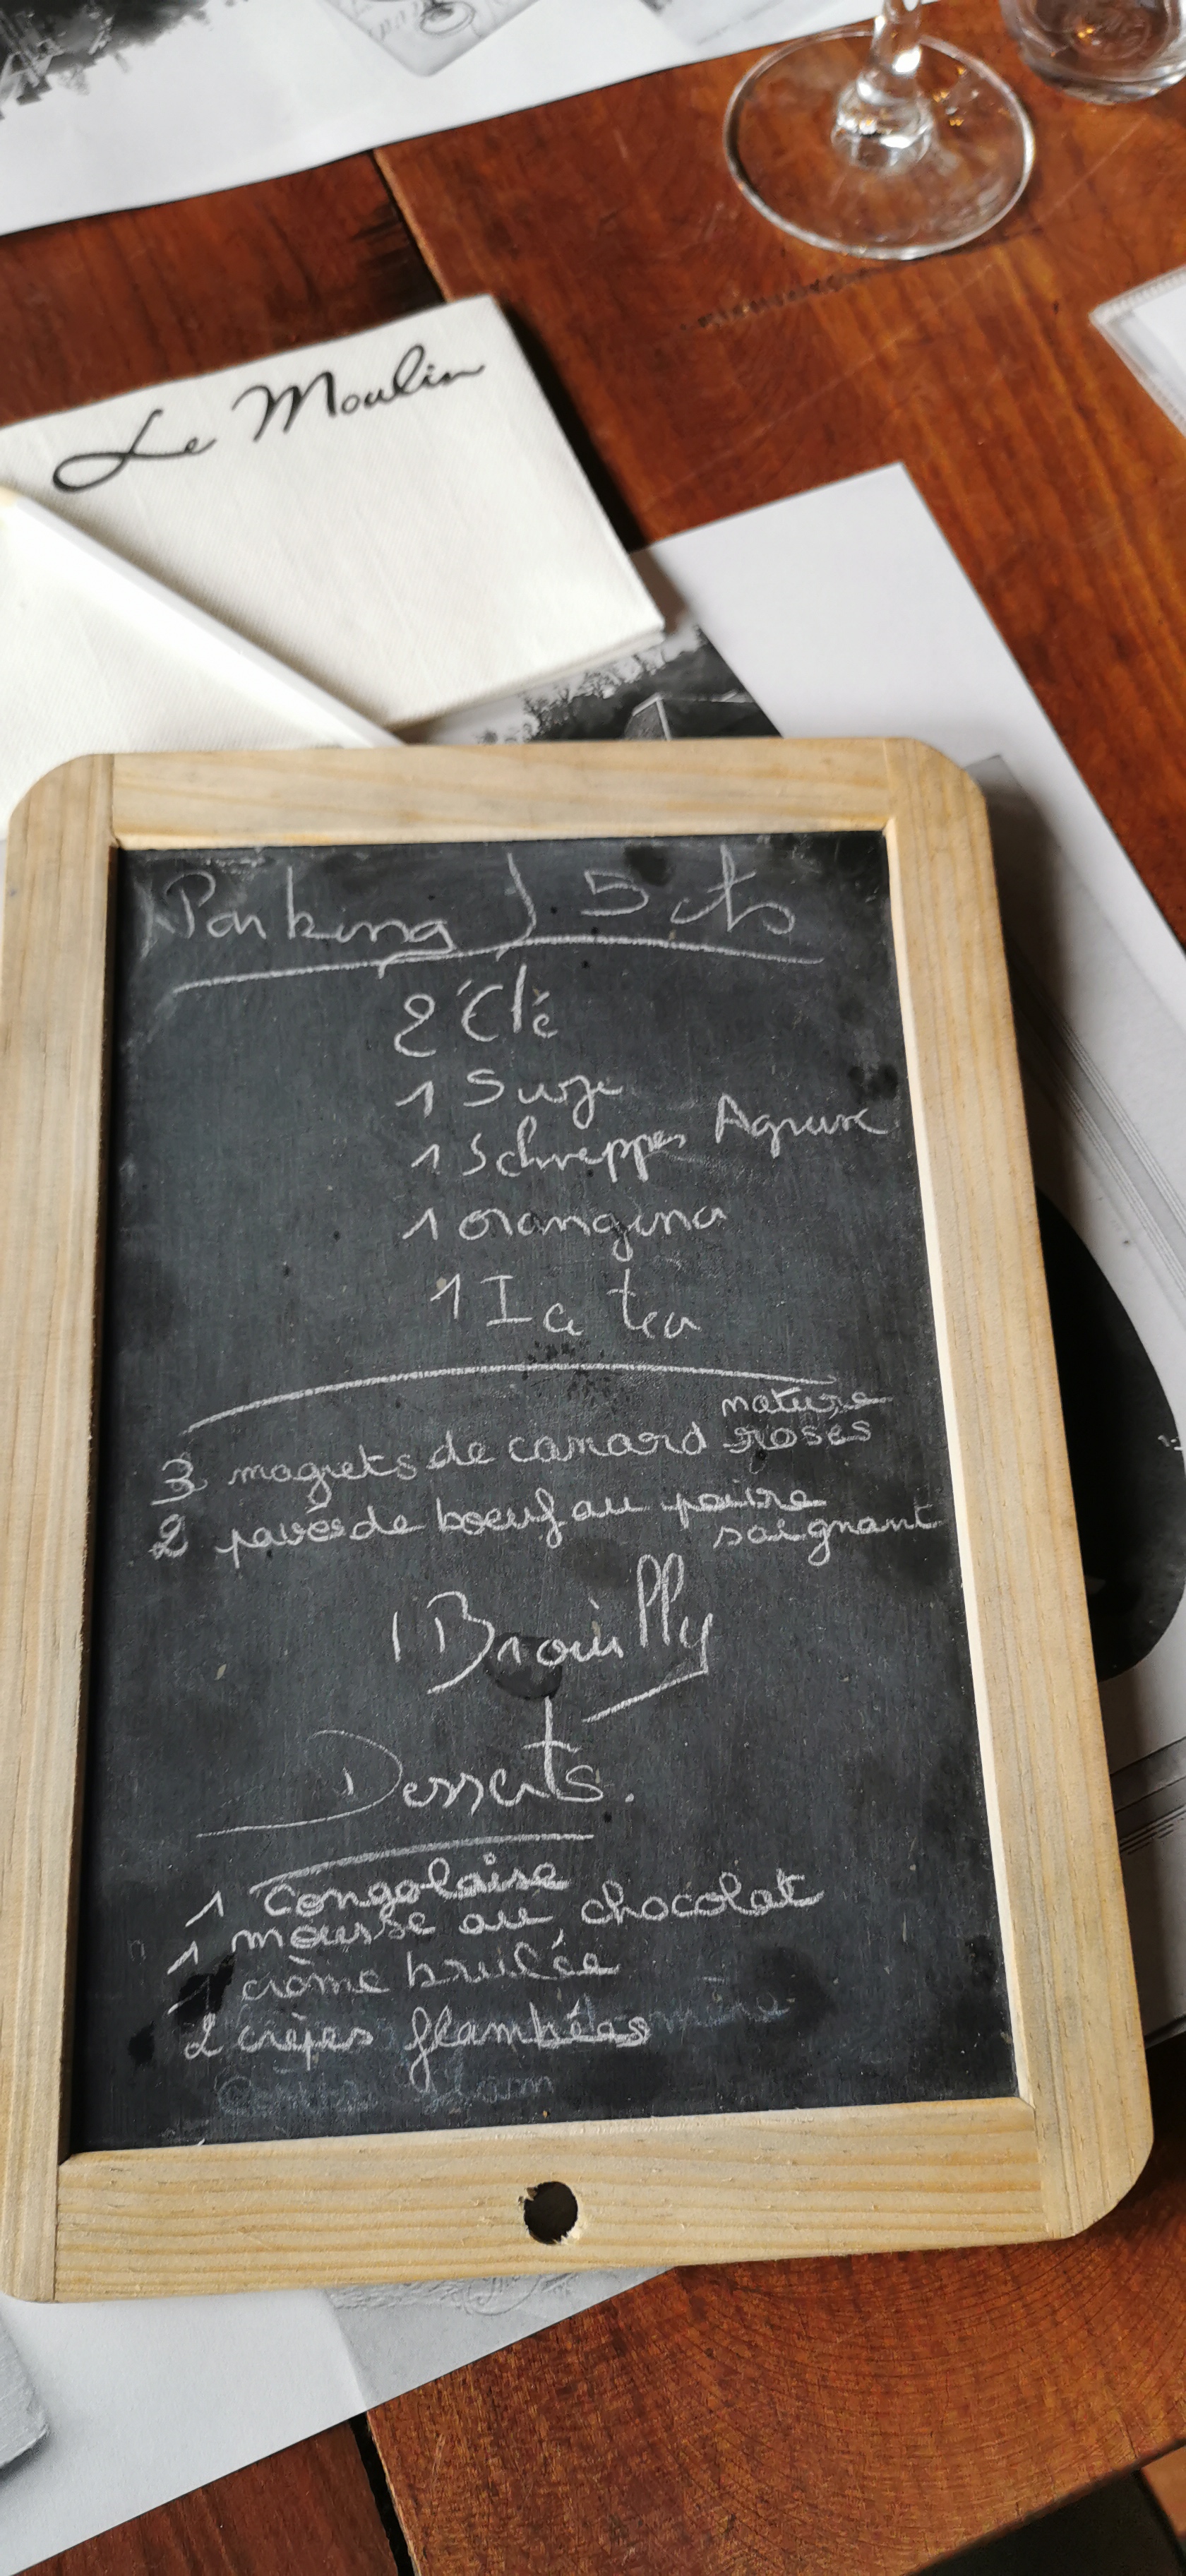 Le Moulin
Parking 5 cts
2 Eté
1 Suze
1 Schweppes Agrum
1 orangina
1 Ice tea
nature
3 magrets de canard roses
2 pavés de boeuf au poivre
saignant
1 Brouilly
Desserts.
1 congolaise
1 mousse au chocolat
1 crème brulée
2 crêpes flambées